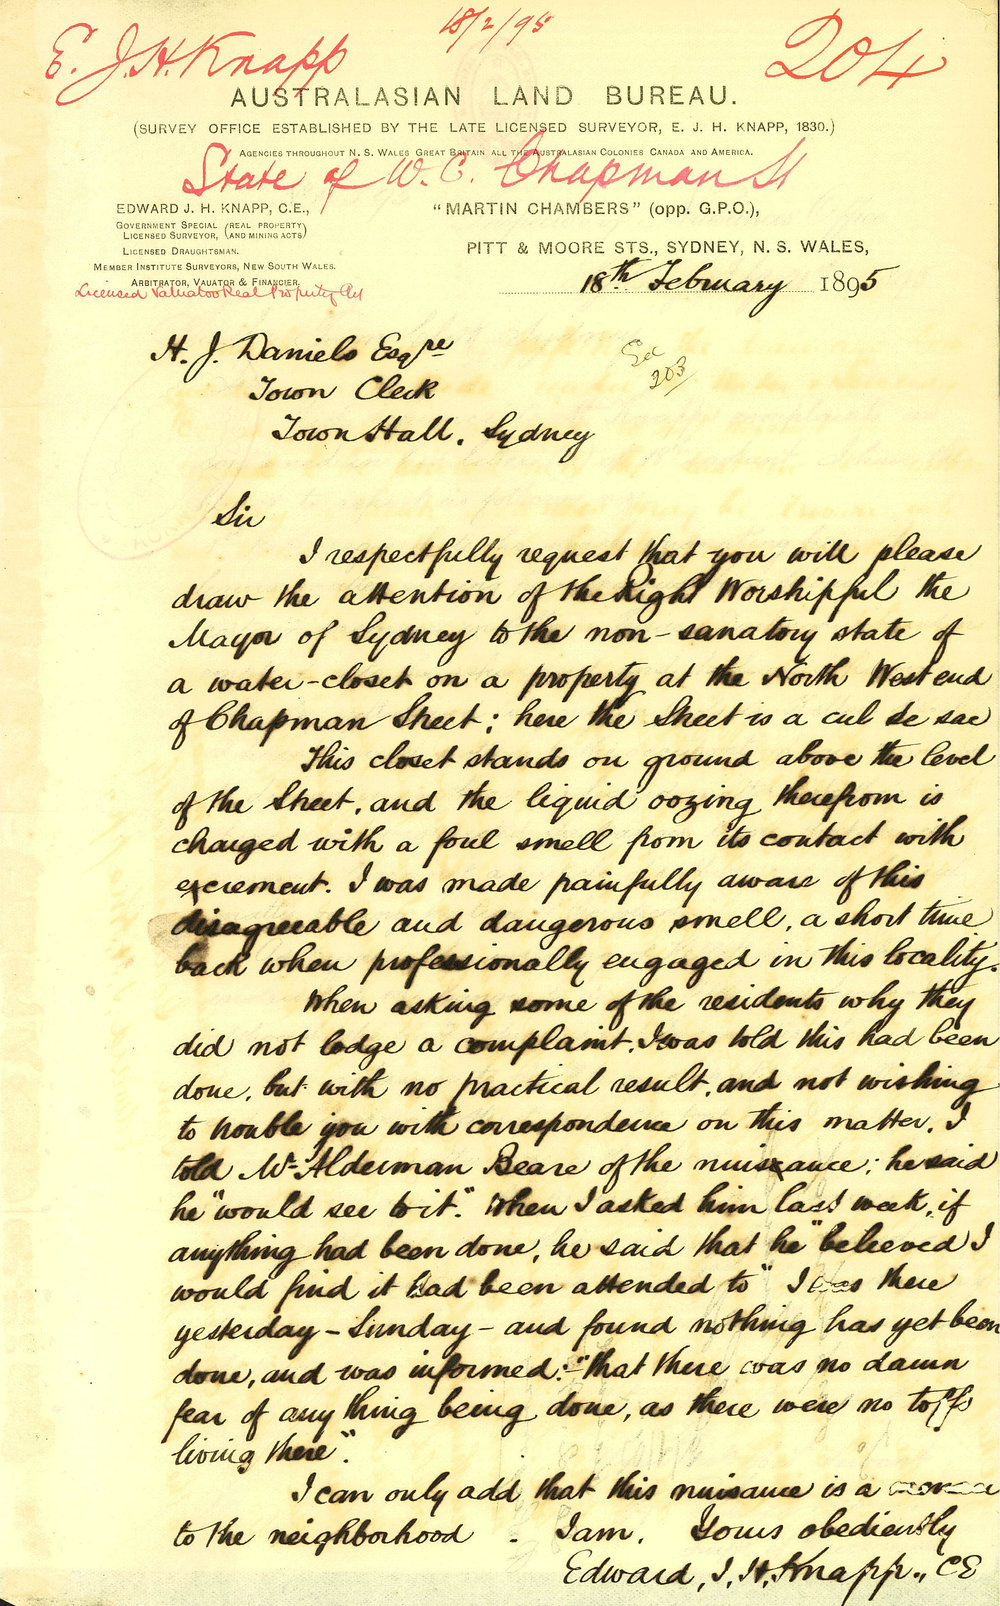 18/2/95
E. J. H. Knapp
204
AUSTRALASIAN LAND BUREAU.
(SURVEY OFFICE ESTABLISHED BY THE LATE LICENSED SURVEYOR, E. J. H. KNAPP, 1830.)
AGENCIES THROUGHOUT N. S. WALES GREAT BRITAIN ALL THE AUSTRALASIAN COLONIES CANADA AND AMERICA.
State of W. C. Chapman St
EDWARD J. H. KNAPP, C.E.,
GOVERNMENT SPECIAL (REAL PROPERTY
LICENSED SURVEYOR, AND MINING ACTS)
LICENSED DRAUGHTSMAN.
MEMBER INSTITUTE SURVEYORS, NEW SOUTH WALES.
ARBITRATOR, VAUATOR & FINANCIER.
Licensed Valuator Real Property Act
"MARTIN CHAMBERS" (opp. G.P.O.),
PITT & MOORE STS., SYDNEY, N. S. WALES,
18th February 1895
H. J. Daniels Esqre
Town Clerk
Town Hall, Sydney
See
203
Sir
I respectfully request that you will please
draw the attention of the Right Worshipful the
Mayor of Sydney to the non-sanatory state of
a water-closet on a property at the North West end
of Chapman Street; here the Street is a cul de sac
This closet stands on ground above the level
of the Street, and the liquid oozing therefrom is
charged with a foul smell from its contact with
excrement. I was made painfully aware of this
disagreeable and dangerous smell, a short time
back when professionally engaged in this locality.
When asking some of the residents why they
did not lodge a complaint. I was told this had been
done, but with no practical result, and not wishing
to trouble you with correspondence on this matter, I
told Mr Alderman Beare of the nuisance; he said
he "would see to it." When I asked him last week, if
anything had been done, he said that he "believed I
would find it had been attended to" I was there
yesterday - Sunday - and found nothing has yet been
done, and was informed:- "that there was no damn
fear of any thing being done, as there were no toffs
living there".
I can only add that this nuisance is a
to the neighborhood. I am, Yours obediently
Edward, J, H, Knapp., CE